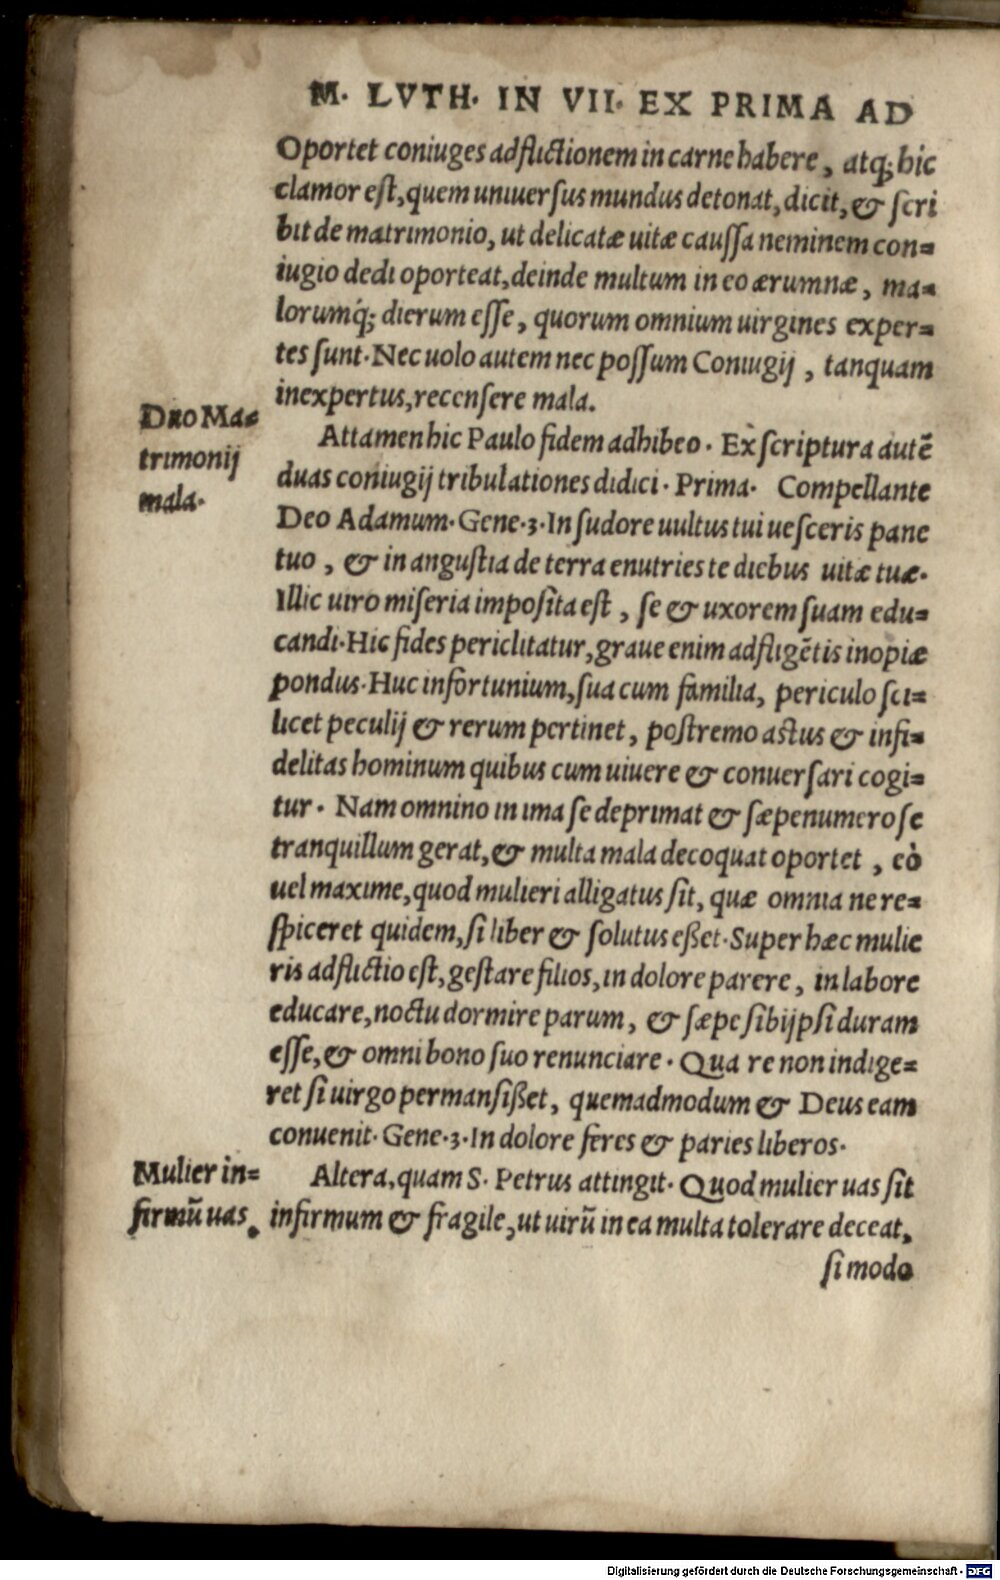 M. LVTH. IN VII. EX PRIMA AD
Oportet coniuges adflictionem in carne habere, atq; hic
clamor eſt, quem uniuerſus mundus detonat, dicit, & ſcri
bit de matrimonio, ut delicatæ uitæ cauſſa neminem con=
iugio dedi oporteat, deinde multum in eo ærumnæ, ma=
lorumq́; dierum eſſe, quorum omnium uirgines exper=
tes ſunt. Nec uolo autem nec poſſum Coniugij, tanquam
inexpertus, recenſere mala.
Duo Ma=
trimonij
mala.
Attamen hic Paulo fidem adhibeo. Ex ſcriptura autẽ
duas coniugij tribulationes didici. Prima. Compellante
Deo Adamum. Gene. 3. In ſudore uultus tui ueſceris pane
tuo, & in anguſtia de terra enutries te diebus uitæ tuæ.
Illic uiro miſeria impoſita eſt, ſe & uxorem ſuam edu=
candi. Hic fides periclitatur, graue enim adfligẽtis inopiæ
pondus. Huc infortunium, ſua cum familia, periculo ſci=
licet peculij & rerum pertinet, poſtremo aſtus & infi=
delitas hominum quibus cum uiuere & conuerſari cogi=
tur. Nam omnino in ima ſe deprimat & ſæpenumero ſe
tranquillum gerat, & multa mala decoquat oportet, eò
uel maxime, quod mulieri alligatus ſit, quæ omnia ne re=
ſpiceret quidem, ſi liber & ſolutus eßet. Super hæc mulie
ris adflictio eſt, geſtare filios, in dolore parere, in labore
educare, noctu dormire parum, & ſæpe ſibijpſi duram
eſſe, & omni bono ſuo renunciare. Qua re non indige=
ret ſi uirgo permanſißet, quemadmodum & Deus eam
conuenit. Gene. 3. In dolore feres & paries liberos.
Mulier in=
firmũ uas.
Altera, quam S. Petrus attingit. Quod mulier uas ſit
infirmum & fragile, ut uirũ in ea multa tolerare deceat,
ſi modo
Digitalisierung gefördert durch die Deutsche Forschungsgemeinschaft - DFG